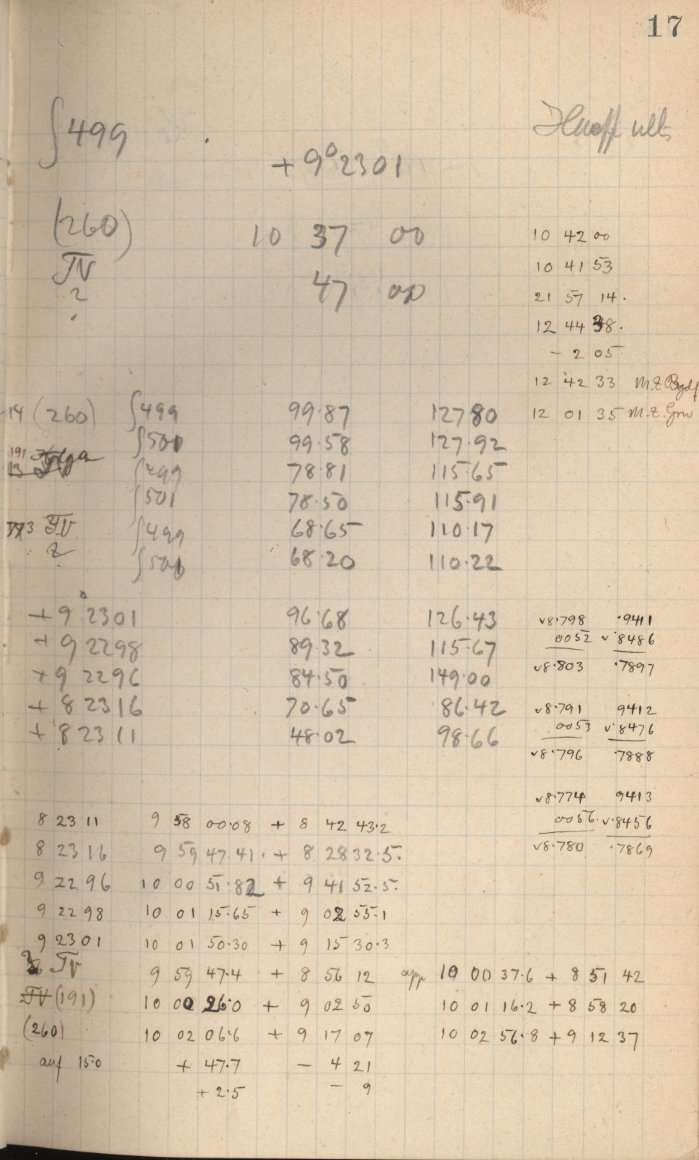 17
∫499
+9° 2301
(260) 10 37 00
IV 47 00
?
10 42 00
10 41 53
21 57 14.
12 44 38.
- 2 05
12 42 33 M.Z.
12 01 35 M.Z. Grw
14 (260) ∫499 99.87 127 80
∫501 99.58 127.92
191 ∫499 78.81 115.65
13 ∫501 78.50 115.91
773 IV ∫499 68.65 110.17
? ∫501 68.20 110.22
+9° 2301 96.68 126.43
+9 2298 89.32 115.67
+9 2296 84.50 149.00
+8 2316 70.65 86.42
+8 2311 48.02 98.66
v8.798 .9411
0052 v.8486
v8.803 .7897
v8.791 9412
0053 v.8476
v8.796 .7888
v8.774 9413
0056 v.8456
v8.780 .7869
8 23 11 9 58 00.08 + 8 42 43.2
8 23 16 9 59 47.41. + 8 28 32.5.
9 22 96 10 00 51.82 + 9 41 52.5.
9 22 98 10 01 15.65 + 9 02 55.1
9 23 01 10 01 50.30 + 9 15 30.3
IV 9 59 47.4 + 8 56 12 app 10 00 37.6 + 8 51 42
IV (191) 10 00 26.0 + 9 02 50 10 01 16.2 + 8 58 20
(260) 10 02 06.6 + 9 17 07 10 02 56.8 + 9 12 37
auf 15.0 + 47.7 - 4 21
+ 2.5 - 9